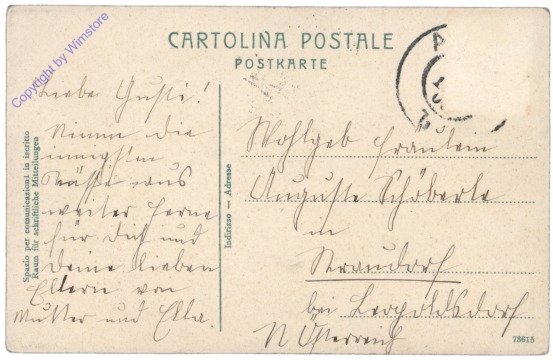 CARTOLINA POSTALE
POSTKARTE
Copyright by Wimstore
Liebe Gusti!
Nimm die
innigsten
Küsse aus
weiter Ferne
für Dich und
Deine lieben
Eltern von
Mutter und Ella.
Spazio per comunicazioni in iscritto
Raum für schriftliche Mitteilungen
Indirizzo — Adresse
Wohlgeb Fräulein
Auguste Schöberle
in
bei Leopoldsdorf
N Österreich
73615